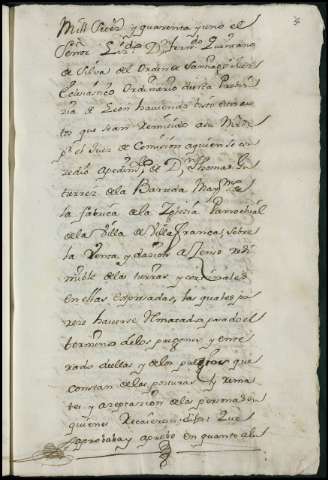 Mill Setezs. y quarenta y uno el
Señor Lizdo. Dn. Ferndo. Quintano
de Silva del Orden de Santiago Juez
Eclesiastico Ordinario de esta Provin
zia de Leon haviendo visto estos au
tos que sean remitido a su Mrd.
pr. el Juez de Comision aquien se co
metio a pedimto. de Dn. Thomas Gu
tierrez de la Barreda Maymo. de
la fabrica de la Iglesia Parrochial
de la Villa de Villafranca, sobre
la Venta y dazion a Zenso redi
mible de las tierras y cortinales
en ellos expresadas, las quales pa
reze haverse rematado, pasado el
termino de los pregones, y ente
rado de ellas y de los que
constan de las posturas y rema
tes y azeptazion de las personas en
quienes recaieron: Dijo: Que
aprobaba y aprobo en quanto al